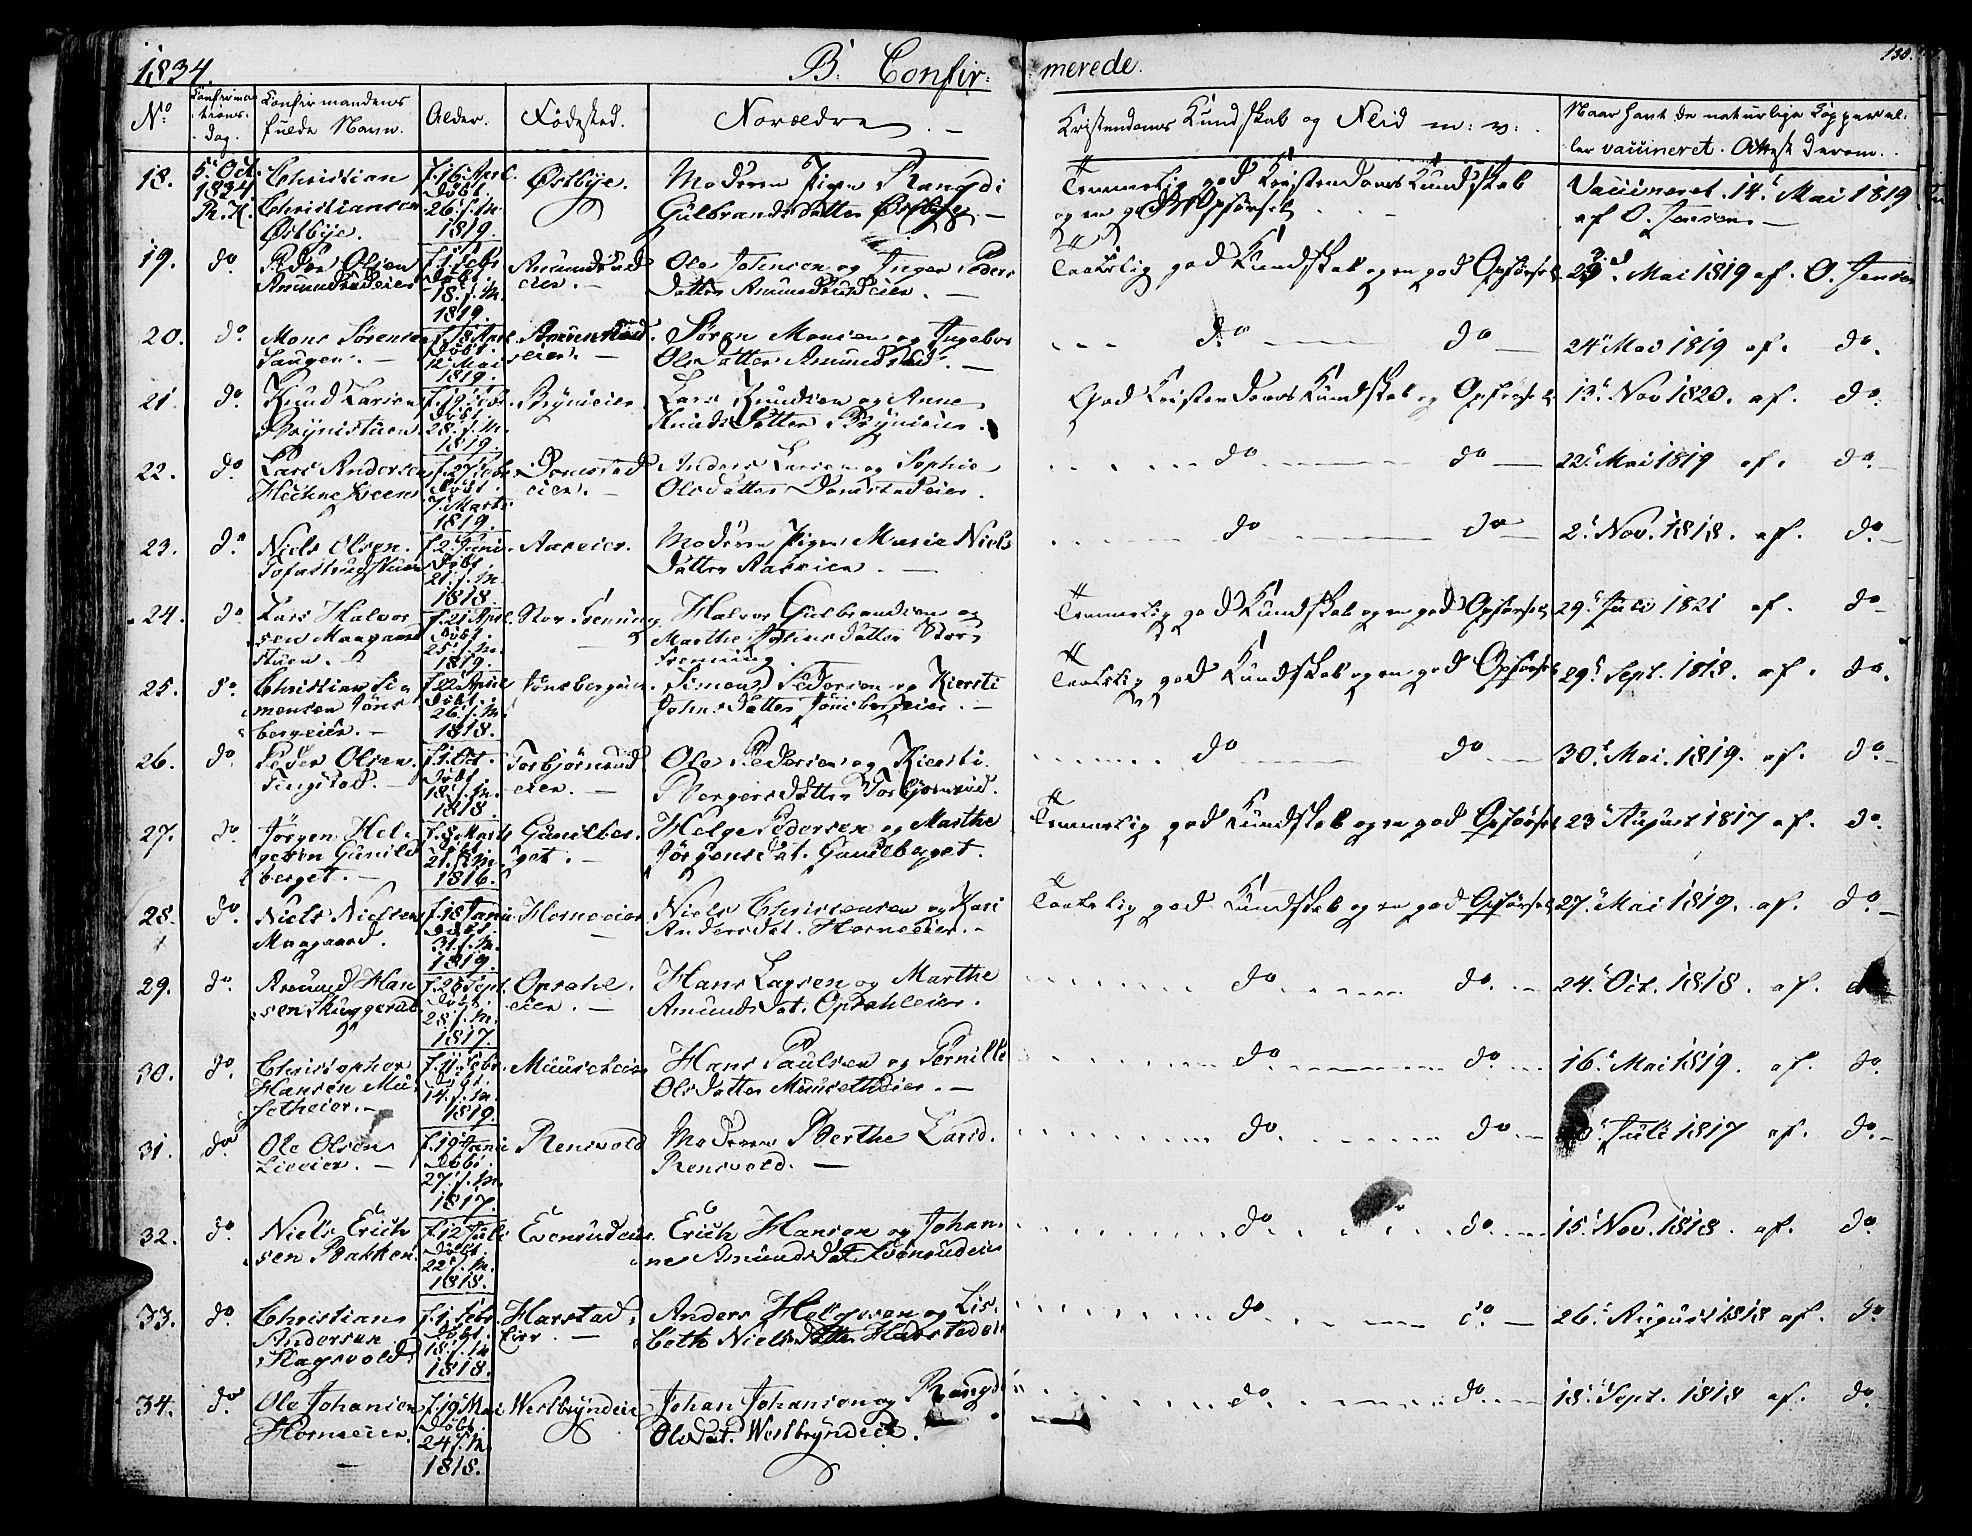 1834. B. Confir: merede. 130.
No. Confirmations-dag. Confirmandens fulde Navn. Alder. Fødested. Forældre. Kristendoms Kundskab og Flid m: v: Naar havt de naturlige Kopper eller vaccineret. Attest derom.
18. 5. Oct. 1834 Christian Christiansen Østbye. f. 16 April. døbt. 26. s. M. 1819. Østbye. Moderen Pigen Rangdi Gulbrandsdatter Østbye. Temmelig god Kristendoms Kundskab og en god Opførsel Vaccineret. 14. Mai 1819 af O. Jensen
19. do Peder Olsen Amundstadeier f. 1. Febr døbt. 18. s. M. 1819. Amundstad eier. Ole Johnsen og Inger Peders datter Amundstadeier. Taalelig god Kundskab og en god Opførsel Mai 1819 af. O. Jensen
20. do. Mons Sørensen Haugen. døbt. 12. Mai 1819. Amundstad eier. Søren Monsen og Ingebor Olsdatter Amundstad. do do 24 Mai 1819 af. do.
21. do. Knud Larsen Brynistuen f. 19. Febr. døbt. 28. s. M. 1819. Brynieier Lars Knudsen og Anne Knudsdatter Brynieier. God Kristendoms Kundskab og Opførsel 13. Nov 1820. af. do.
22. do Lars Andersen f. 27. Febr. døbt. 7. Marts 1819. Domstad eier. Anders Larsen og Sophie Olsdatter Domstadeier. do. do 22. Mai 1819 af. do.
23. do Niels Olsen. Tofastrudstuen f. 2. Juni. døbt. 21. s. M. 1818. Aaseier. Moderen Pigen Marie Niels datter Aaseier. do do 2. Nov. 1818. af. do.
24. do Lars Halvorsen Maagaardstuen. f. 21 April. døbt. 25. s. M. 1819. Stor Frening Halvor Gulbrandsen og Marthe datter Stor Frenning. Temmelig god Kundskab og en god Opførsel 29. Juli 1821 af. do
25. do Christian Simensen Jonsbergeier. f. 22 April døbt. 26. s. M. 1818. Jonsbergeier. Simen Pedersen og Kiersti Johnsdatter Jonsbergeier. Taalelig god Kundskab og en god Opførsel 29. Sept. 1818. af. do.
26. do Peder Olsen. Tingstad. f. 1. Oct. døbt. 18. s. M. 1818. Torbjørnrud eier. Ole Pedersen og Kiersti Børgersdatter Torbjørnrud. do do 30. Mai. 1819. af. do
27. do Jørgen Helgesen Gunildberget. f. 8. Marts døbt. 21. s. M. 1816. Gunilberget. Helge Pedersen og Marthe Jørgensdat. Gunilberget. Temmelig god Kundskab og en god Opførsel 23. August 1817 af. do.
28. do. Niels Nielsen Maagaard. f. 18 døbt. 31. s. M. 1819. Horneeier Niels Christensen og Kari Andersdat. Horneeier. Taalelig god Kundskab og en god Opførsel 27. Mai 1819. af. do.
29. do. Amund Hansen Skuggerud f. 20 Sept. døbt. 28. s. M. 1817. Opsahl eier. Hans Larsen og Marthe Amundsdat. Opsahleier. do. do. 24. Oct. 1818. af. do
30. do. Christopher Hansen Musetheier. f. 11. Febr. døbt. 14. s. M. 1819. Musetheier Hans Paulsen og Pernille Olsdatter Musetheier. do. do. 16. Mai 1819. af. do.
31. do. Ole Olsen Lieeier. f. 19 døbt. 27. s. M. 1817. Rensvold Moderen Berthe Larsd. Rensvold. do. do. Juli 1817 af. do.
32. do Niels Erichsen Bakken. f. 12 Juli døbt. 22. s. M. 1818. Evensrudeier. Erich Hansen og Johanne Amundsdat. Evensrudeier do. do. 15. Nov. 1818. af. do.
33. do Christian Andersen Hagevold. f. 1. Febr. døbt. 18. s. M 1818. Harstad eier. Anders Helgesen og Lisbeth Nielsdatter Harstadeier do. do. 26. August 1818 af. do
34. do. Ole Johansen Horneeier. f. 19. Mai døbt. 24. s. M. 1818. Westbyndeier Johan Johansen og Rangdi Olsdat. Westbyndeier. do. do. 18. Sept. 1818 af. do.